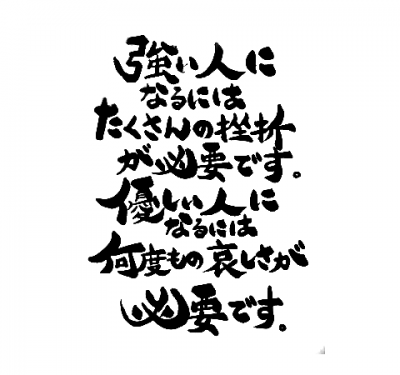 強い人に
なるには
たくさんの挫折
が必要です。
優しい人に
なるには
何度もの哀しさが
必要です。